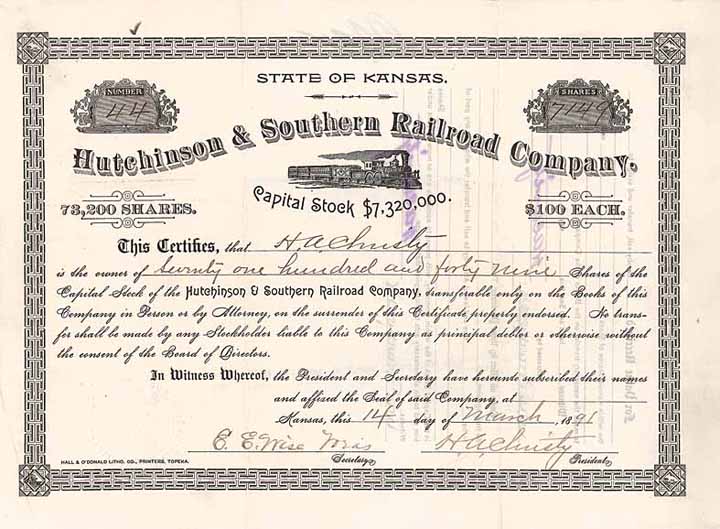 STATE OF KANSAS.
NUMBER
44
SHARES
7149
Hutchinson & Southern Railroad Company.
Capital Stock $7,320,000.
73,200 SHARES.
$100 EACH.
This Certifies, that H. A. Christy
is the owner of Seventy one hundred and forty nine Shares of the
Capital Stock of the Hutchinson & Southern Railroad Company, transferable only on the Books of this
Company in Person or by Attorney, on the surrender of this Certificate properly endorsed. No trans-
fer shall be made by any Stockholder liable to this Company as principal debtor or otherwise without
the consent of the Board of Directors.
In Witness Whereof, the President and Secretary have hereunto subscribed their names
and affixed the Seal of said Company, at
Kansas, this 14 day of March, 1891
E. E. Wise
H. A. Christy
Secretary.
President.
HALL & O'DONALD LITHO. CO., PRINTERS, TOPEKA.